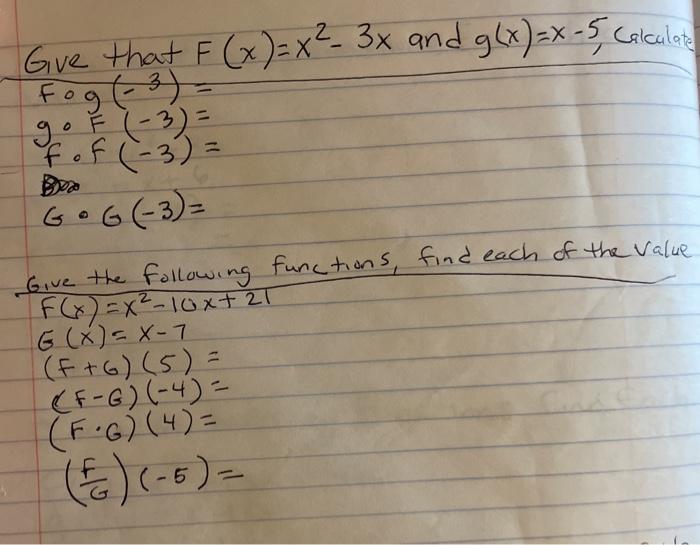 Give that F(x)=x²-3x and g(x)=x-5, Calculate
fog(-3)=
g∘F(-3)=
f∘f(-3)=
G∘G(-3)=
Give the following functions, find each of the value
F(x)=x²-10x+21
G(x)=x-7
(F+G)(5)=
(F-G)(-4)=
(F·G)(4)=
(F/G)(-5)=